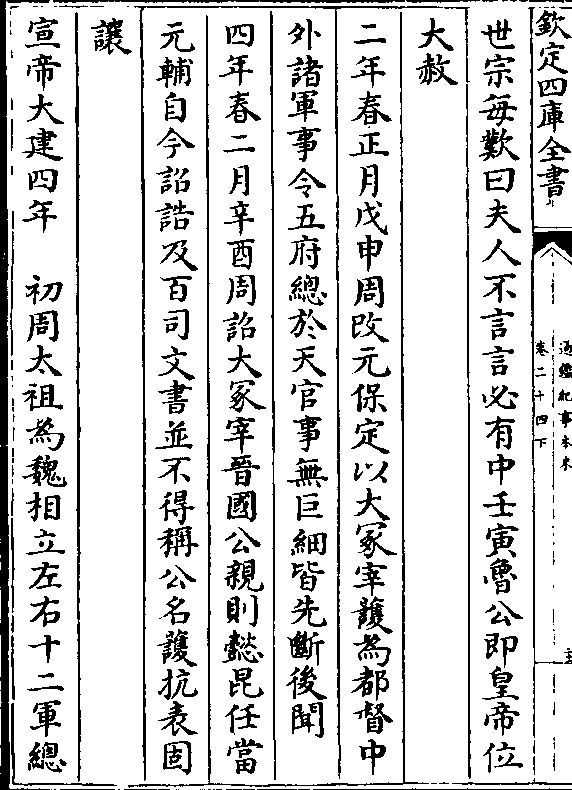 欽定四庫全書
通鑑紀事本末
卷二十四下
世宗每歎曰夫人不言言必有中壬寅魯公即皇帝位
大赦
二年春正月戊申周改元保定以大冢宰護為都督中
外諸軍事令五府總於天官事無巨細皆先斷後聞
四年春二月辛酉周詔大冢宰晉國公親則懿昆任當
元輔自今詔誥及百司文書並不得稱公名護抗表固
讓
宣帝大建四年　初周太祖為魏相立左右十二軍總